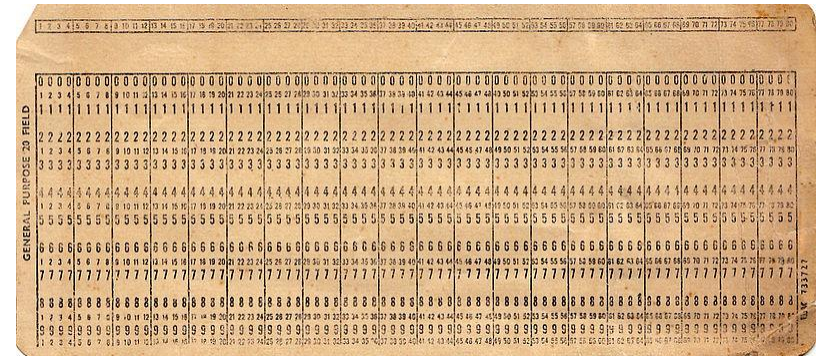 1 2 3 4 5 6 7 8 9 10 11 12 13 14 15 16 17 18 19 20 21 22 23 24 25 26 27 28 29 30 31 32 33 34 35 36 37 38 39 40 41 42 43 44 45 46 47 48 49 50 51 52 53 54 55 56 57 58 59 60 61 62 63 64 65 66 67 68 69 70 71 72 73 74 75 76 77 78 79 80
GENERAL PURPOSE 20 FIELD
00000000000000000000000000000000000000000000000000000000000000000000000000000000
1 2 3 4 5 6 7 8 9 10 11 12 13 14 15 16 17 18 19 20 21 22 23 24 25 26 27 28 29 30 31 32 33 34 35 36 37 38 39 40 41 42 43 44 45 46 47 48 49 50 51 52 53 54 55 56 57 58 59 60 61 62 63 64 65 66 67 68 69 70 71 72 73 74 75 76 77 78 79 80
11111111111111111111111111111111111111111111111111111111111111111111111111111111
22222222222222222222222222222222222222222222222222222222222222222222222222222222
1 2 3 4 5 6 7 8 9 10 11 12 13 14 15 16 17 18 19 20 21 22 23 24 25 26 27 28 29 30 31 32 33 34 35 36 37 38 39 40 41 42 43 44 45 46 47 48 49 50 51 52 53 54 55 56 57 58 59 60 61 62 63 64 65 66 67 68 69 70 71 72 73 74 75 76 77 78 79 80
33333333333333333333333333333333333333333333333333333333333333333333333333333333
44444444444444444444444444444444444444444444444444444444444444444444444444444444
1 2 3 4 5 6 7 8 9 10 11 12 13 14 15 16 17 18 19 20 21 22 23 24 25 26 27 28 29 30 31 32 33 34 35 36 37 38 39 40 41 42 43 44 45 46 47 48 49 50 51 52 53 54 55 56 57 58 59 60 61 62 63 64 65 66 67 68 69 70 71 72 73 74 75 76 77 78 79 80
55555555555555555555555555555555555555555555555555555555555555555555555555555555
66666666666666666666666666666666666666666666666666666666666666666666666666666666
1 2 3 4 5 6 7 8 9 10 11 12 13 14 15 16 17 18 19 20 21 22 23 24 25 26 27 28 29 30 31 32 33 34 35 36 37 38 39 40 41 42 43 44 45 46 47 48 49 50 51 52 53 54 55 56 57 58 59 60 61 62 63 64 65 66 67 68 69 70 71 72 73 74 75 76 77 78 79 80
77777777777777777777777777777777777777777777777777777777777777777777777777777777
88888888888888888888888888888888888888888888888888888888888888888888888888888888
1 2 3 4 5 6 7 8 9 10 11 12 13 14 15 16 17 18 19 20 21 22 23 24 25 26 27 28 29 30 31 32 33 34 35 36 37 38 39 40 41 42 43 44 45 46 47 48 49 50 51 52 53 54 55 56 57 58 59 60 61 62 63 64 65 66 67 68 69 70 71 72 73 74 75 76 77 78 79 80
99999999999999999999999999999999999999999999999999999999999999999999999999999999
733727